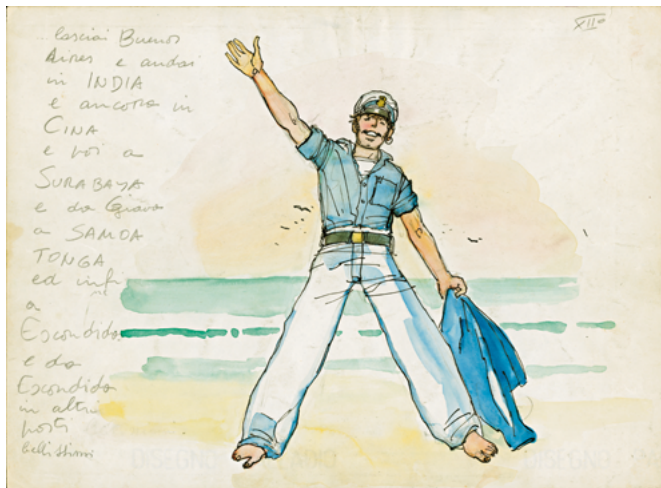 ... lasciai Buenos
Aires e andai
in INDIA
e ancora in
CINA
e poi a
SURABAYA
e da Giava
a SAMOA
TONGA
ed infi
a
Escondida
e da
Escondida
in altri
posti
bellissimi
XII°
DISEGNO
DISEGNO